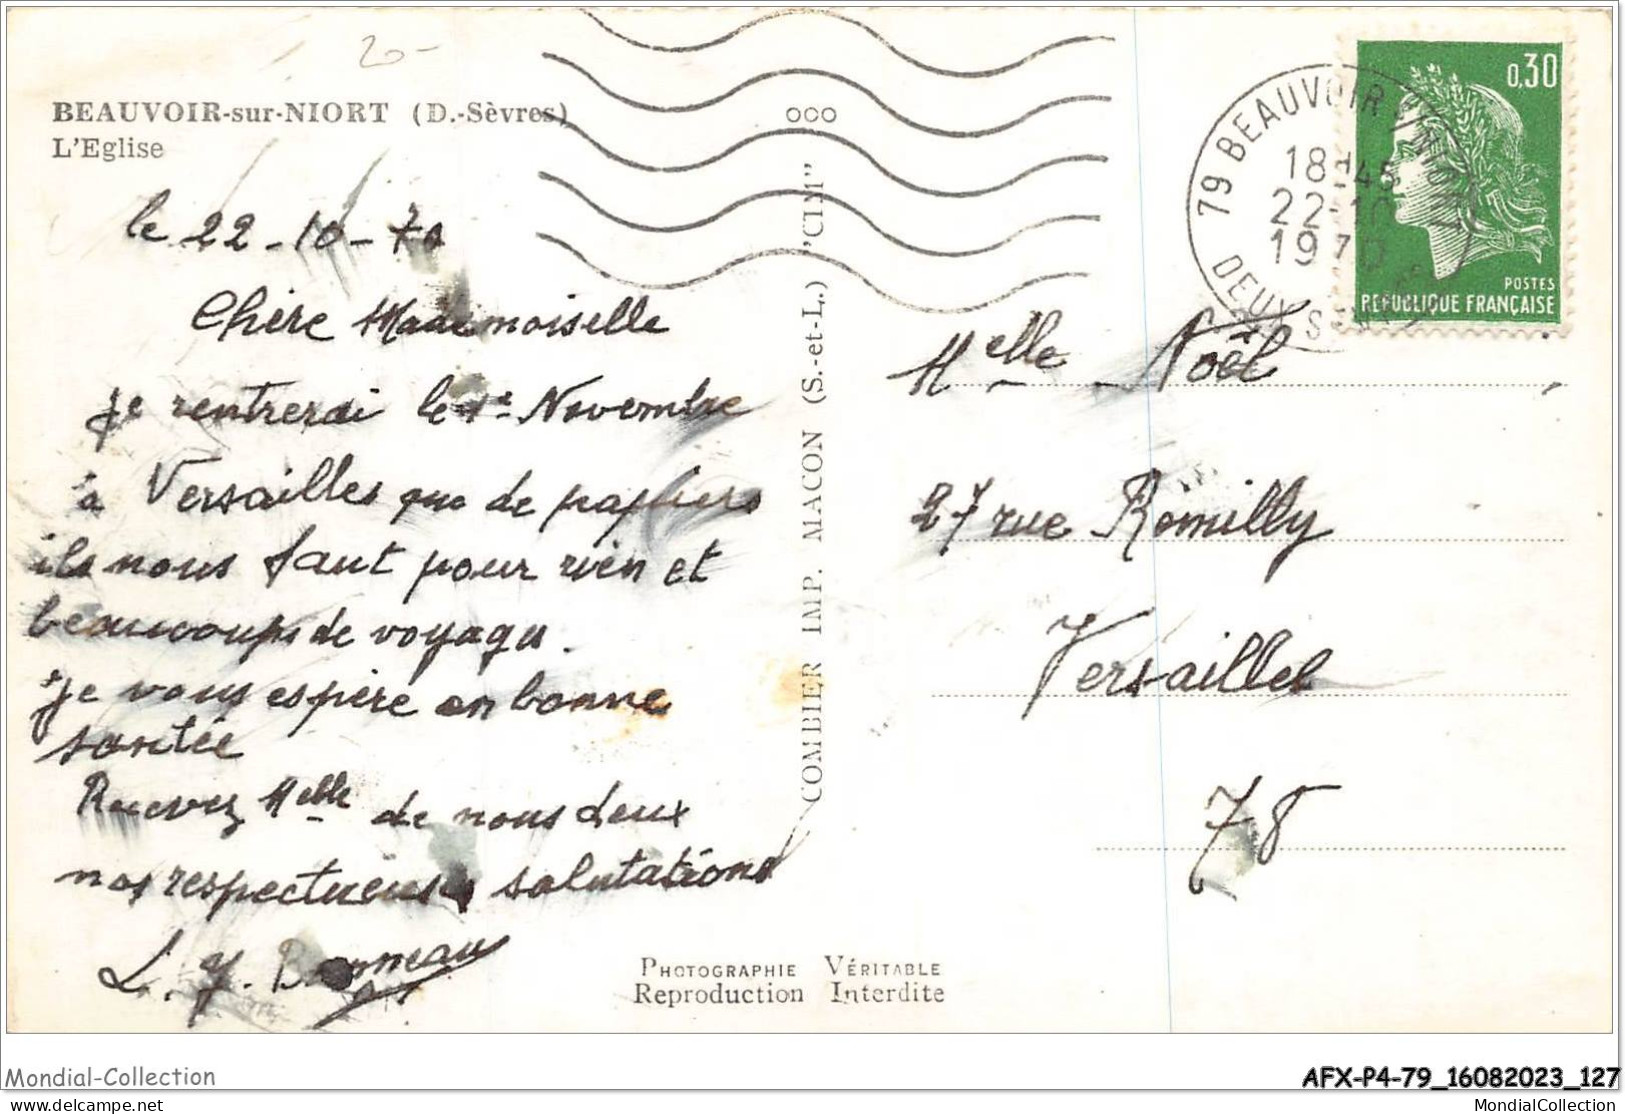 20-
BEAUVOIR-sur-NIORT (D.-Sèvres)
L'Eglise
le 22-10-70
Chère Mademoiselle
je rentrerai le 1e Novembre
à Versailles que de papiers
ils nous faut pour rien et
beaucoups de voyages.
Je vous espère en bonne
santée
Recevez Melle de nous deux
nos respectueuses salutations
L. Y.
COMBIER IMP. MACON (S.-et-L.) "CIM"
000
79 BEAUVOIR S/NIORT
18H45
22-10
1970
DEUX SEVRES
0,30
POSTES
REPUBLIQUE FRANÇAISE
Melle Noël
27 rue Romilly
Versailles
78
PHOTOGRAPHIE VÉRITABLE
Reproduction Interdite
Mondial-Collection
AFX-P4-79_16082023_127
delcampe.net
MondialCollection